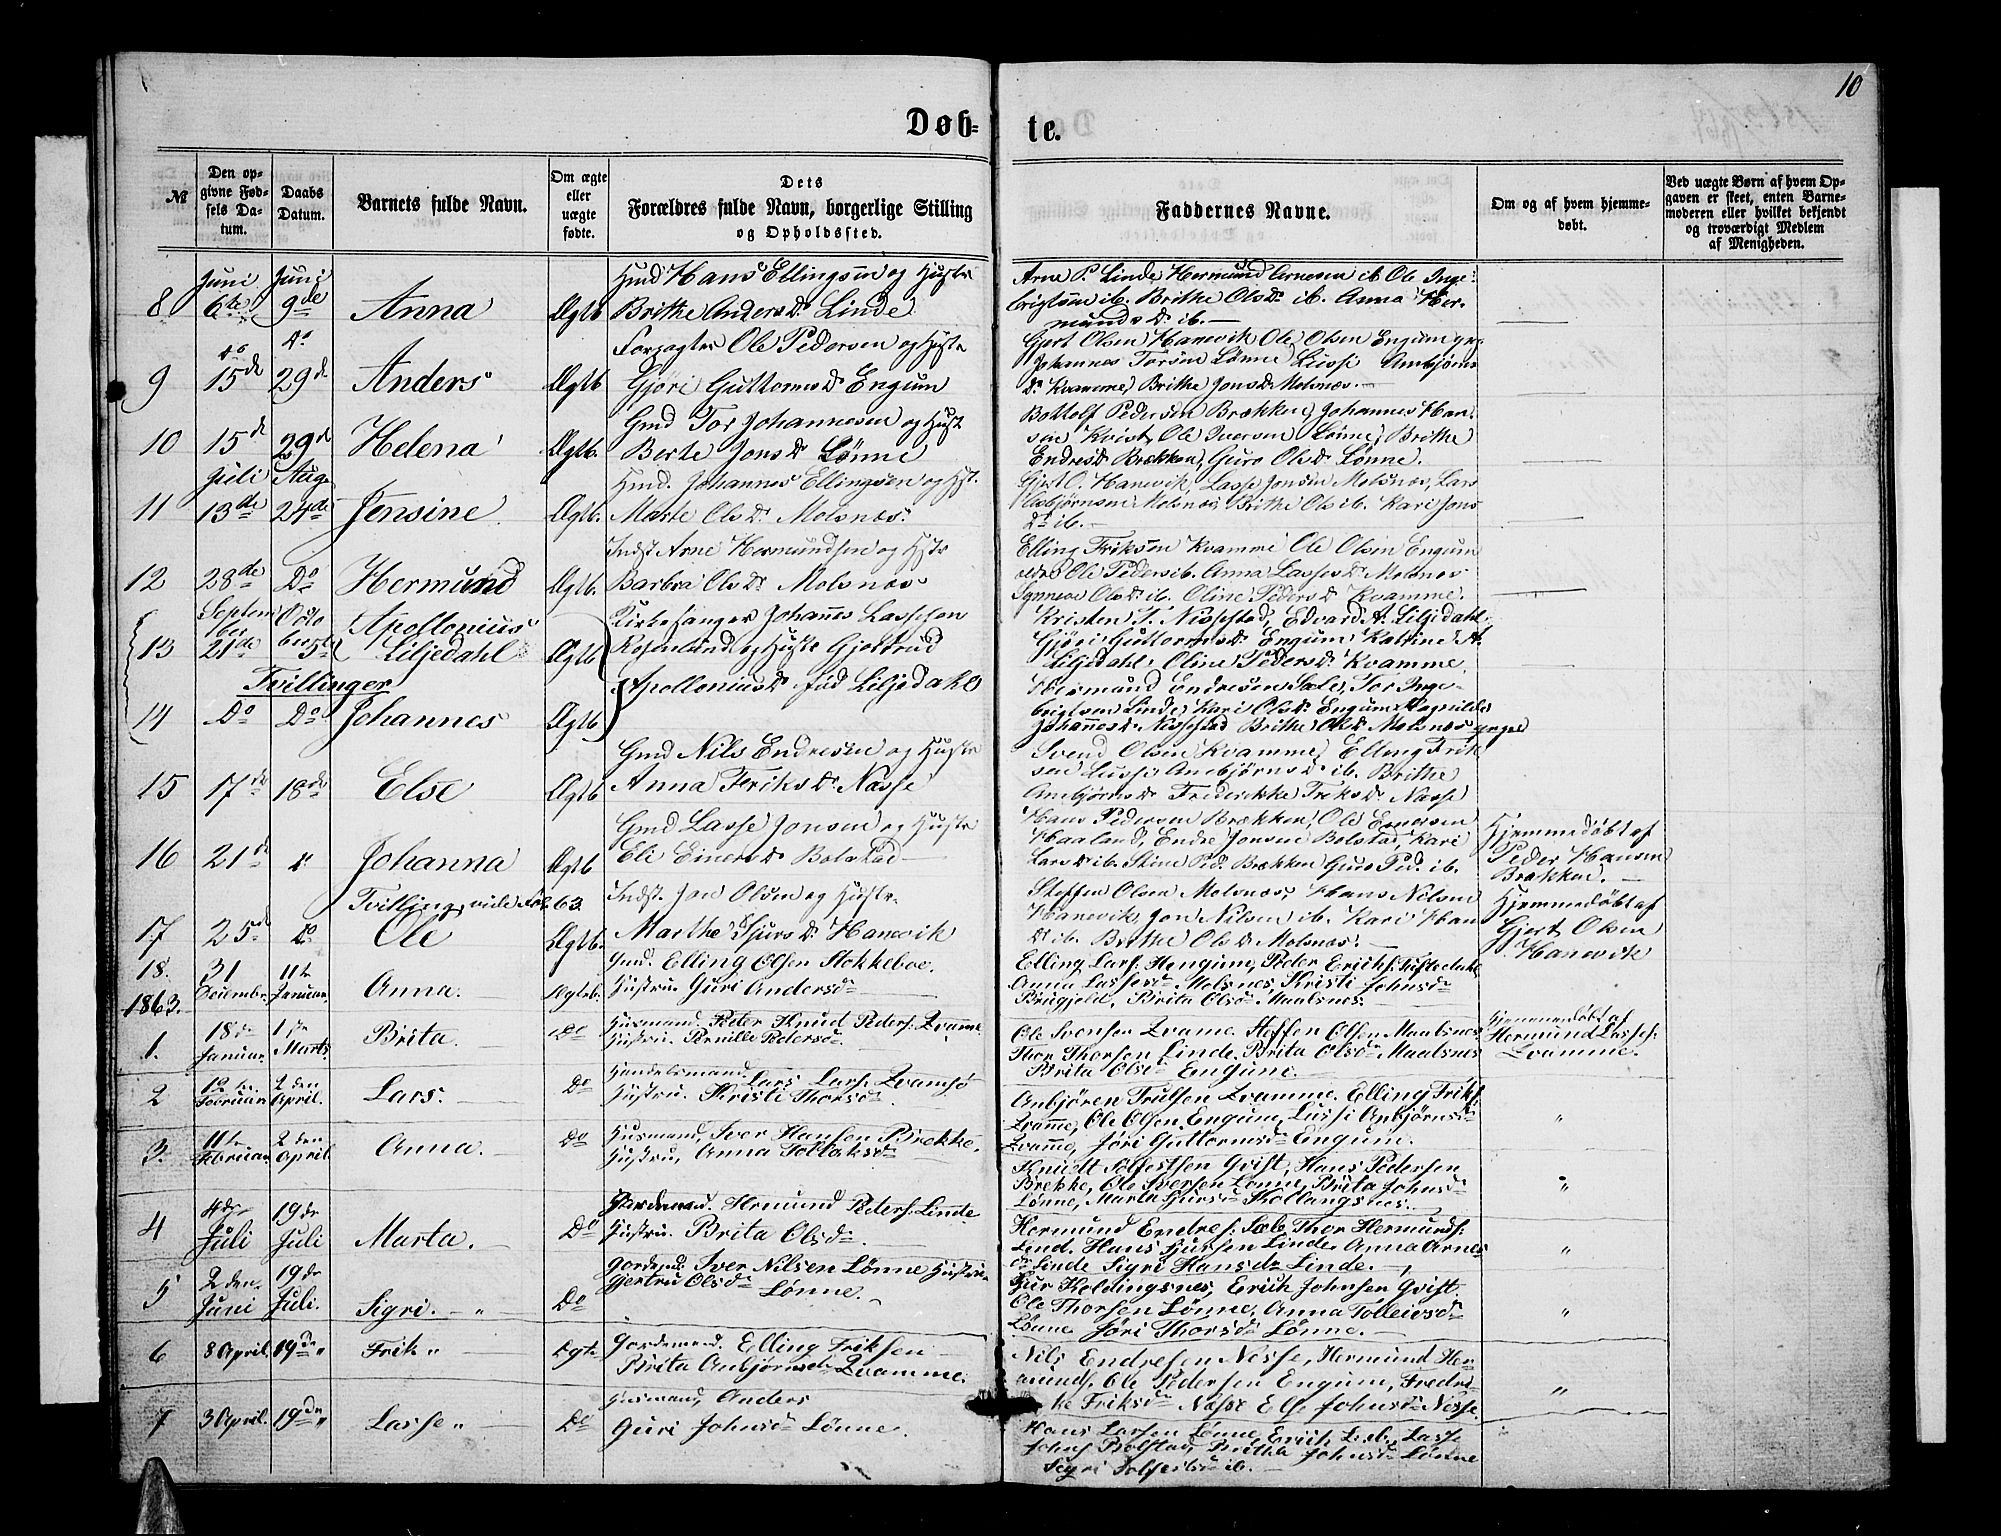 10
Døb-
te.
№
Den op-
givne Fød-
sels Da-
tum.
Daabs
Datum.
Barnets fulde Navn.
Om ægte
eller
uægte
fødte.
Dets
Forældres fulde Navn, borgerlige Stilling
og Opholdssted.
Faddernes Navne.
Om og af hvem hjemme-
døbt.
Ved uægte Børn af hvem Op-
gaven er skeet, enten Barne-
moderen eller hvilket bekjendt
og troværdigt Medlem
af Menigheden.
8
Juni
6te
Juni
9de
Anna
Ægtb
Hmd Hans Ellingsen og Hustr
Brithe Anders D. Linde
Arne P. Linde Hermund Arnesen ib Ole Inge-
brigtsen ib. Brithe Ols D. ib. Anna Her-
munds D. ib.
9
do
15de
do
29de
Anders
Ægtb
Forpagter Ole Pedersen og Hustr
Gjøri Guttorms D. Engum
Gjert Olsen Hanevik Ole Olsen Engum
Johannes Torsen Lønne Lussi Anbjørns
D. Kvamme Brithe Jons D. Molsnæs.
10
15de
29de
Helena
Ægtb.
Gmd Tor Johannesen og Hust
Berte Jons D. Lønne
Bottolf Pedersen Brækken, Johannes Han-
sen Kvist, Ole Iversen Lønne, Brithe
Endres D. Brækken, Guro Ols D. Lønne.
11
Juli
13de
Aug.
24de
Jensine
Ægtb.
Hmd. Johannes Ellingsen og Hst.
Marte Ols D. Molsnæs.
Gjert O. Hanevik, Lasse Jonsen Molsnæs, Lars
Asbjørnsen Molsnæs, Brithe Ols ib. Kari Jons
D. ib.
12
28de
Do
Hermund
Ægtb.
Indst Arne Hermundsen og Hstr
Barbra Ols D. Molsnæs
Elling Friksen Kvamme Ole Olsen Engum
Ole Peders ib. Anna Lasses D. Molsnæs
Synneve Ols D. ib. Oline Peders D. Kvamme.
13
Septem
ber
21de
Octo
ber 5te
Apollonius
Liljedahl
Ægtb
Kirkesanger Johannes Lassesen
Rosenlund og Hustr Gjertrud
Apollonius D. fød Liljedahl
Kristen T. Nissestad, Edvard A. Liljedahl,
Gjøri Guttorms D. Engum Katrine A.
Liljedahl, Oline Peders D. Kvamme
Tvillinger
14
Do
Do
Johannes
Ægtb
Hermund Endresen Sæle, Tor Inge-
brigtsen Linde, Kari Ols D. Engum
Johannes D. Nissestad Brithe Ols D. Molsnæs
15
17de
18de
Else
Ægtb
Gmd Nils Endresen og Hustr
Anna Friks D. Næsse
Svend Olsen Kvamme, Elling Frik
sen Lussi Anbjørns D. ib. Brithe
Anbjørns D. Frederikke Friks D. Næsse
16
21de
do
Johanna
Ægtb
Gmd Lasse Jonsen og Hustr
Eli Einers D. Bolstad
Hans Pedersen Brækken, Ole Enersen
Haaland, Endre Jonsen Bolstad, Kari
Lars D. ib. Stine Ped. Brækken Guro Ped. ib.
Hjemmedøbt af
Peder Hansen
Brækken.
Tvilling, vide Fol 63
17
25de
do
Ole
Ægtb.
Indst. Jon Olsen og Hustr.
Marthe Sjurs D. Hanevik
Steffen Olsen Molsnæs, Hans Nilsen
Hanevik, Jon Nilsen ib. Kari Han
D. ib. Brithe Ols D. Molsnæs.
Hjemmedøbt af
Gjert Olsen
Hanevik
18.
31
Decembr.
11te
Januar.
Anna.
Ægteb.
Gmd. Elling Olsen Stokkeboe.
Hustru. Guri Andersdr
Elling Lars. Hengum, Peder Ericks.
Anna Lassesdr Molsnes, Kristi Johnsdr
Brugjeld, Brita Olsdr Maalsnes.
1863.
1.
18de
Januar.
1ste
Marts
Brita.
Do
Husmand. Peter Knud Peders. Kvamme.
Hustru. Pernille Pedersdr.
Ole Svensen Kvame. Steffen Olsen Maalsnes.
Thor Thorsen Linde. Brita Olsdr Maalsnes
Brita Olsdr Engum.
Hjemmedøbt af
Hermund Lasses:
Kvamme.
2
12te
Februar.
2 den
April.
Lars.
Do
Handelsmand. Lars Lars. Kvamsø
Hustru. Kristi Thorsdr.
Anbjøren Trulsen Kvamme. Elling Friks.
Kvamme, Ole Olsen Engum, Lussi Anbjørnsdr
Kvamme, Jøri Guttormsdr Engum.
"
3.
11te
Februar.
2 den
April
Anna.
Do
Husmand, Iver Hansen Brekke.
Hustru, Anna Tollaksdr
Knudt Solfestsen Qvist, Hans Pedersen
Brekke, Ole Iversen Lønne, Brita Johnsdr
Lønne, Marta Sjursdr Kollangsnes.
"
4
4de
Juli
19de
Juli
Marta.
Do
Gardemand. Hermund Peders. Linde.
Hustru. Brita Olsdr.
Hermund Endres. Sæle Thor Hermunds.
Lind. Hans Sjursen Linde. Anna Arnes
dr Linde Sigri Hansdr Linde.
"
5
2 den
Juni
19de
Juli.
Sigri.
Do
Gardmd. Iver Nilsen Lønne Hustru
Gjertru Olsdr Lønne.
Sjur Koldingsnes, Erick Johnsen Qvist.
Ole Thorsen Lønne, Anna Tolleivsdr
Lønne Jøri Thorsdr Lønne.
"
6
8 April.
19de "
Frik "
Ægte
Gardemand. Elling Friksen
Brita Anbjørnsdr Kvamme.
Nils Endresen Nesse, Hermund Her-
munds. Ole Pedersen Engum, Fredri-
ke Friksdr Nesse Els. Johnsdr Nesse.
"
7
3 April.
19de "
Lasse "
Do
Husmand, Anders
Guri Johnsdr Lønne.
Hans Larsen Lønne, Erick Lasse
Johns Bolstad, Britha Johnsdr Lønne
Sigri ib.